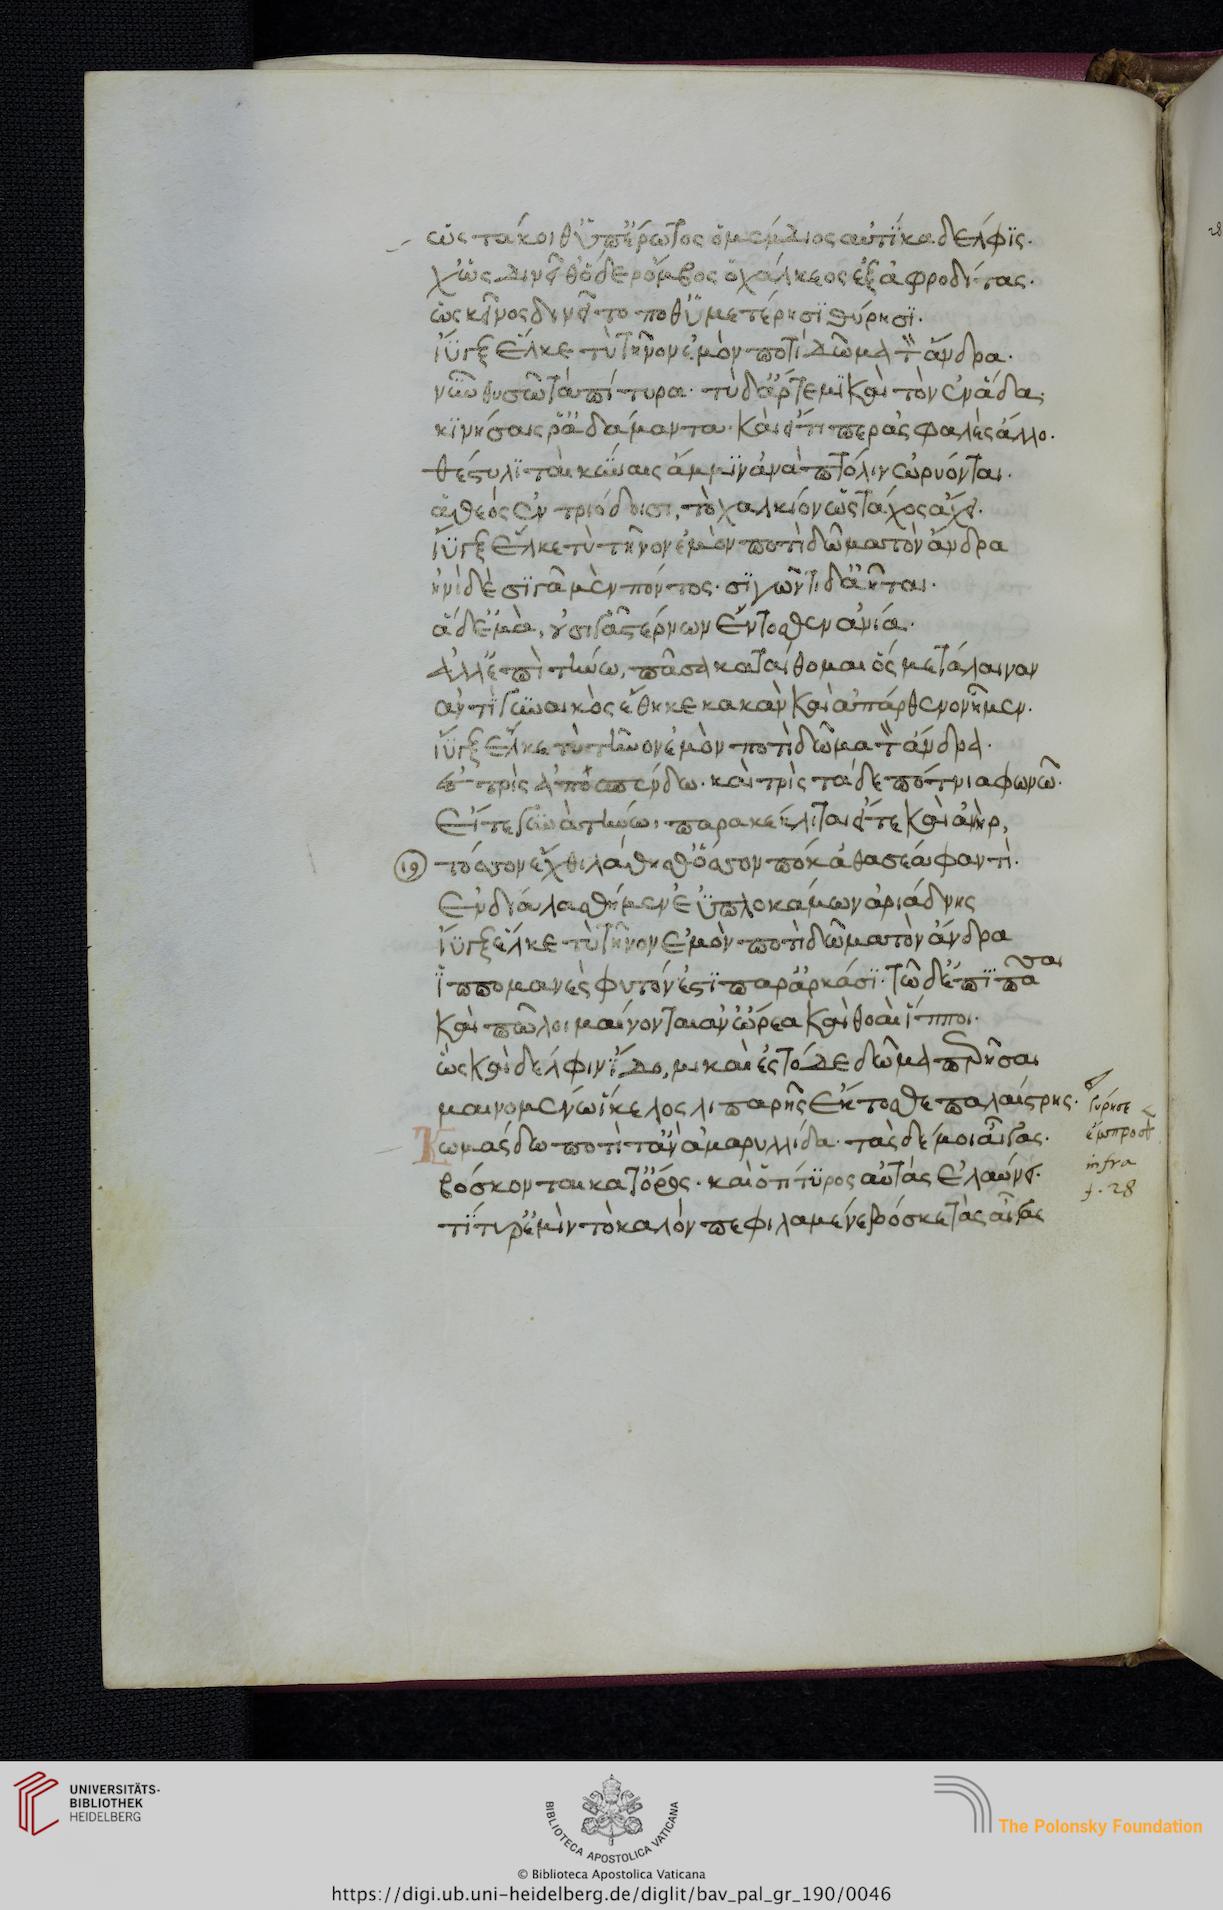 ὣς τάκοιθ' ὑπ' ἔρωτος ὁ μύνδιος αὐτίκα δέλφις.
χ' ὡς δινεῖθ' ὅδε ῥόμβος ὁ χάλκεος ἐξ ἀφροδίτας.
ὡς κεῖνος δινεῖτο ποθ' ὑμετέρησι θύρησι.
ἴϋγξ ἕλκε τὺ τῆνον ἐμὸν ποτὶ δῶμα τὸν ἄνδρα.
νῦν θυσῶ τὰ πίτυρα. τὺ δ' ἄρτεμι καὶ τὸν ἐν ᾅδα
κινήσαις ῥ' ἀδάμαντα. καὶ εἴ τι περ ἀσφαλὲς ἄλλο.
θέστυλι ταὶ κύνες ἄμμιν ἀνὰ πτόλιν ὠρύονται.
ἁ θεὸς ἐν τριόδοισι, τὸ χαλκίον ὡς τάχος ἄχει.
ἴϋγξ ἕλκε τὺ τῆνον ἐμὸν ποτὶ δῶμα τὸν ἄνδρα
ἠνίδε σιγᾶ μὲν πόντος. σιγῶντι δ' ἀῆται.
ἁ δ' ἐμὰ, οὐ σιγᾶ στέρνων ἔντοσθεν ἀνία.
ἀλλ' ἐπὶ τήνω, πᾶσα καταίθομαι ὅς με τάλαιναν
ἀντὶ γυναικὸς ἔθηκε κακὰν καὶ ἀπάρθενον ἦμεν.
ἴϋγξ ἕλκε τὺ τῆνον ἐμὸν ποτὶ δῶμα τὸν ἄνδρα.
ἐς τρὶς ἀποσπένδω. καὶ τρὶς τάδε πότνια φωνῶ.
εἴτε γυνὰ τήνω παρακέκλιται εἴτε καὶ ἀνὴρ,
19 τόσσον ἔχοι λάθας ὅσσον ποκὰ θασέα φαντὶ.
ἐν δία λασθῆμεν ἐϋπλοκάμω ἀριάδνης
ἴϋγξ ἕλκε τὺ τῆνον ἐμὸν ποτὶ δῶμα τὸν ἄνδρα
ἱππομανὲς φυτόν ἐστι παρ' ἀρκάσι. τῶ δ' ἐπὶ πᾶσαι
καὶ πῶλοι μαίνονται ἀν' ὤρεα καὶ θοαὶ ἵπποι.
ὡς καὶ δέλφιν ἴδοιμι καὶ ἐς τόδε δῶμα περῆσαι
μαινομένω ἴκελος λιπαρῆς ἔκτοσθε παλαίστρης.
Κωμάσδω ποτὶ τὰν ἀμαρυλλίδα. τὰς δέ μοι αἶγας.
βόσκονται κατ' ὄρος. καὶ ὁ τίτυρος αὐτὰς ἐλαύνει.
τίτυρ' ἐμὶν τὸ καλὸν πεφιλαμένε βόσκε τὰς αἶγας
infra
f. 28
UNIVERSITÄTS-
BIBLIOTHEK
HEIDELBERG
BIBLIOTECA APOSTOLICA VATICANA
The Polonsky Foundation
© Biblioteca Apostolica Vaticana
https://digi.ub.uni-heidelberg.de/diglit/bav_pal_gr_190/0046